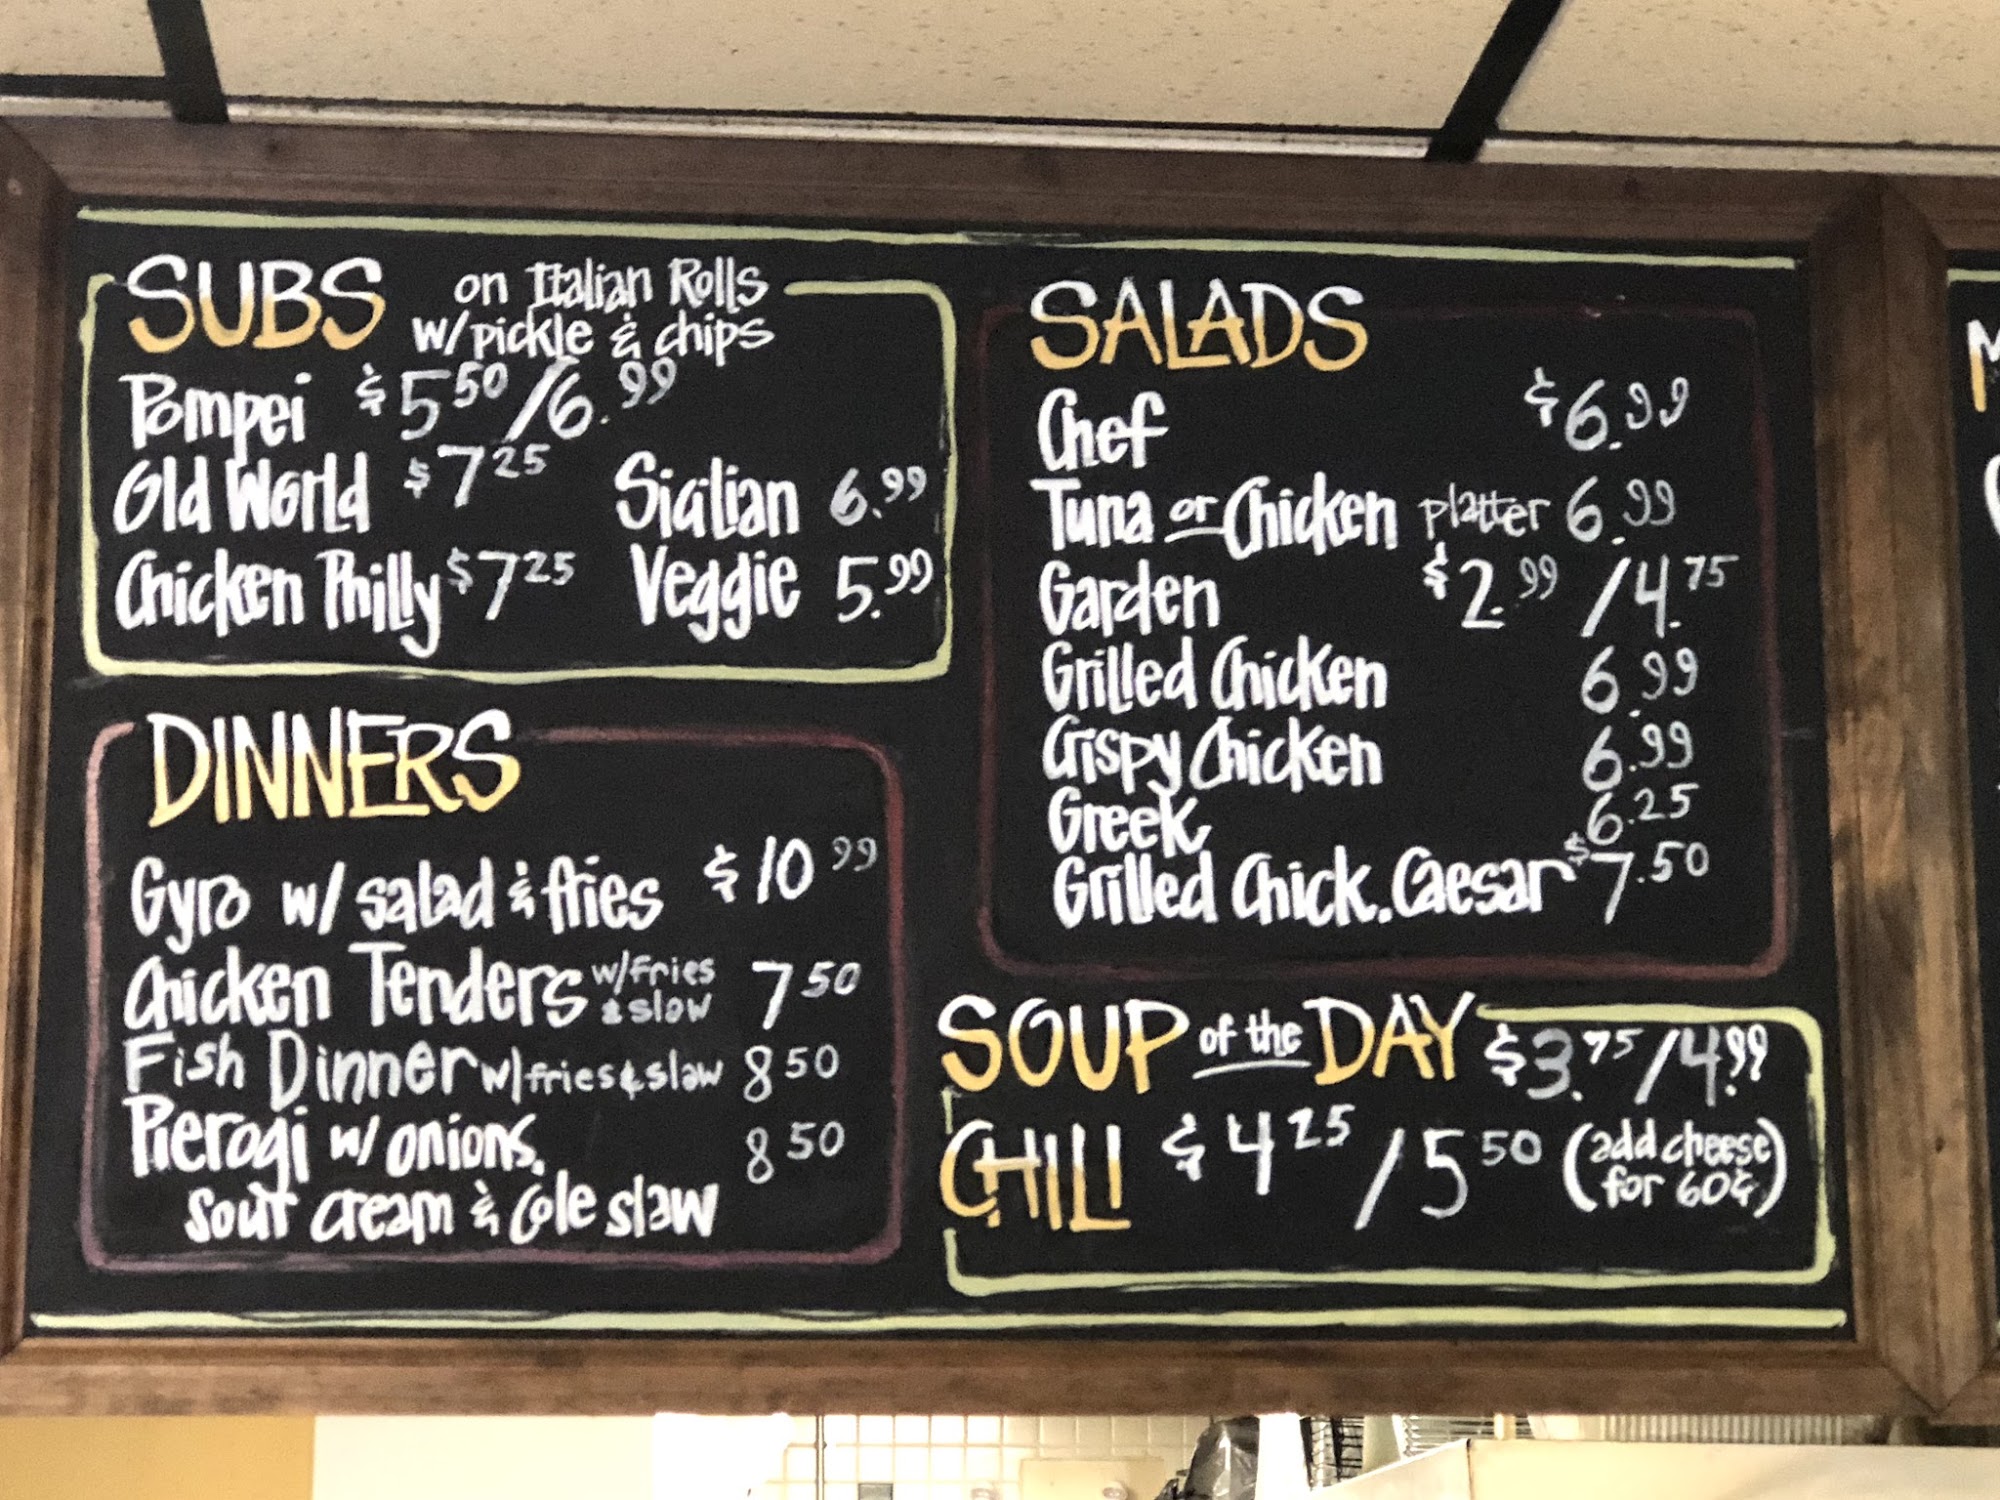 SUBS on Italian Rolls
w/pickle & chips
Pompei $5 50/6.99
Old World $7 25 Sicilian 6.99
Chicken Philly $7 25 Veggie 5.99
DINNERS
Gyro w/ salad & fries $10 99
Chicken Tenders w/fries & slaw 7 50
Fish Dinner w/fries & slaw 8 50
Pierogi w/ onions, 8 50
Sour cream & Cole slaw
SALADS
Chef $6.99
Tuna or Chicken platter 6.99
Garden $2.99 /4.75
Grilled Chicken 6.99
Crispy Chicken 6.99
Greek 6.25
Grilled Chick. Caesar $7.50
SOUP of the DAY $3.75/4.99
CHILI $4 25 /5 50 (add cheese for 60¢)